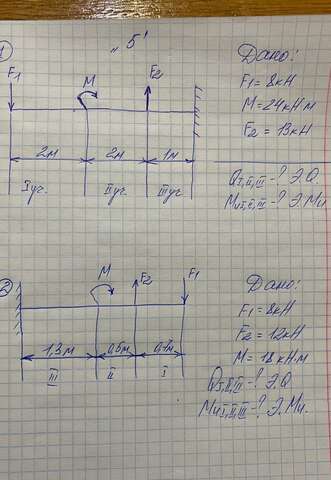 „5"
1
F1
M
F2
2м
2м
1м
I уч.
II уч.
III уч.
Дано:
F1 = 8кН
M = 24кНм
F2 = 13кН
QI,II,III -? Э.Q.
МиI,II,III -? Э.Ми.
2
M
F2
F1
1,3м
0,5м
III
II
I
Дано:
F1 = 8кН
F2 = 12кН
M = 18кНм
QI,II,III -? Э.Q
МиI,II,III -? Э.Ми.